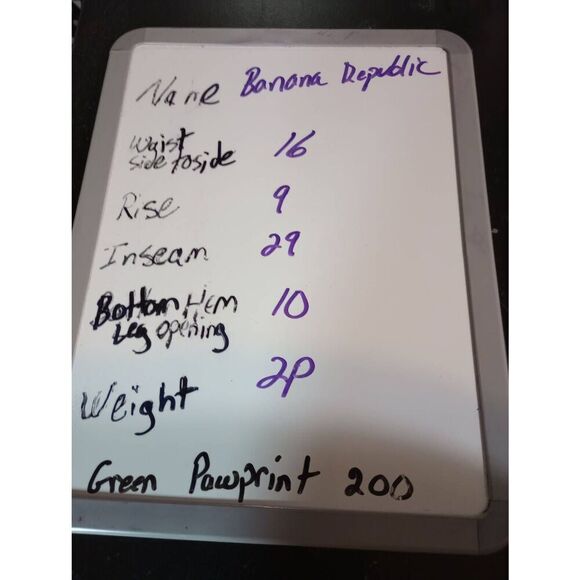 Name Banana Republic
Waist
side to side 16
Rise 9
Inseam 29
Bottom Hem 10
Leg opening
Weight 2P
Green Pawprint 200